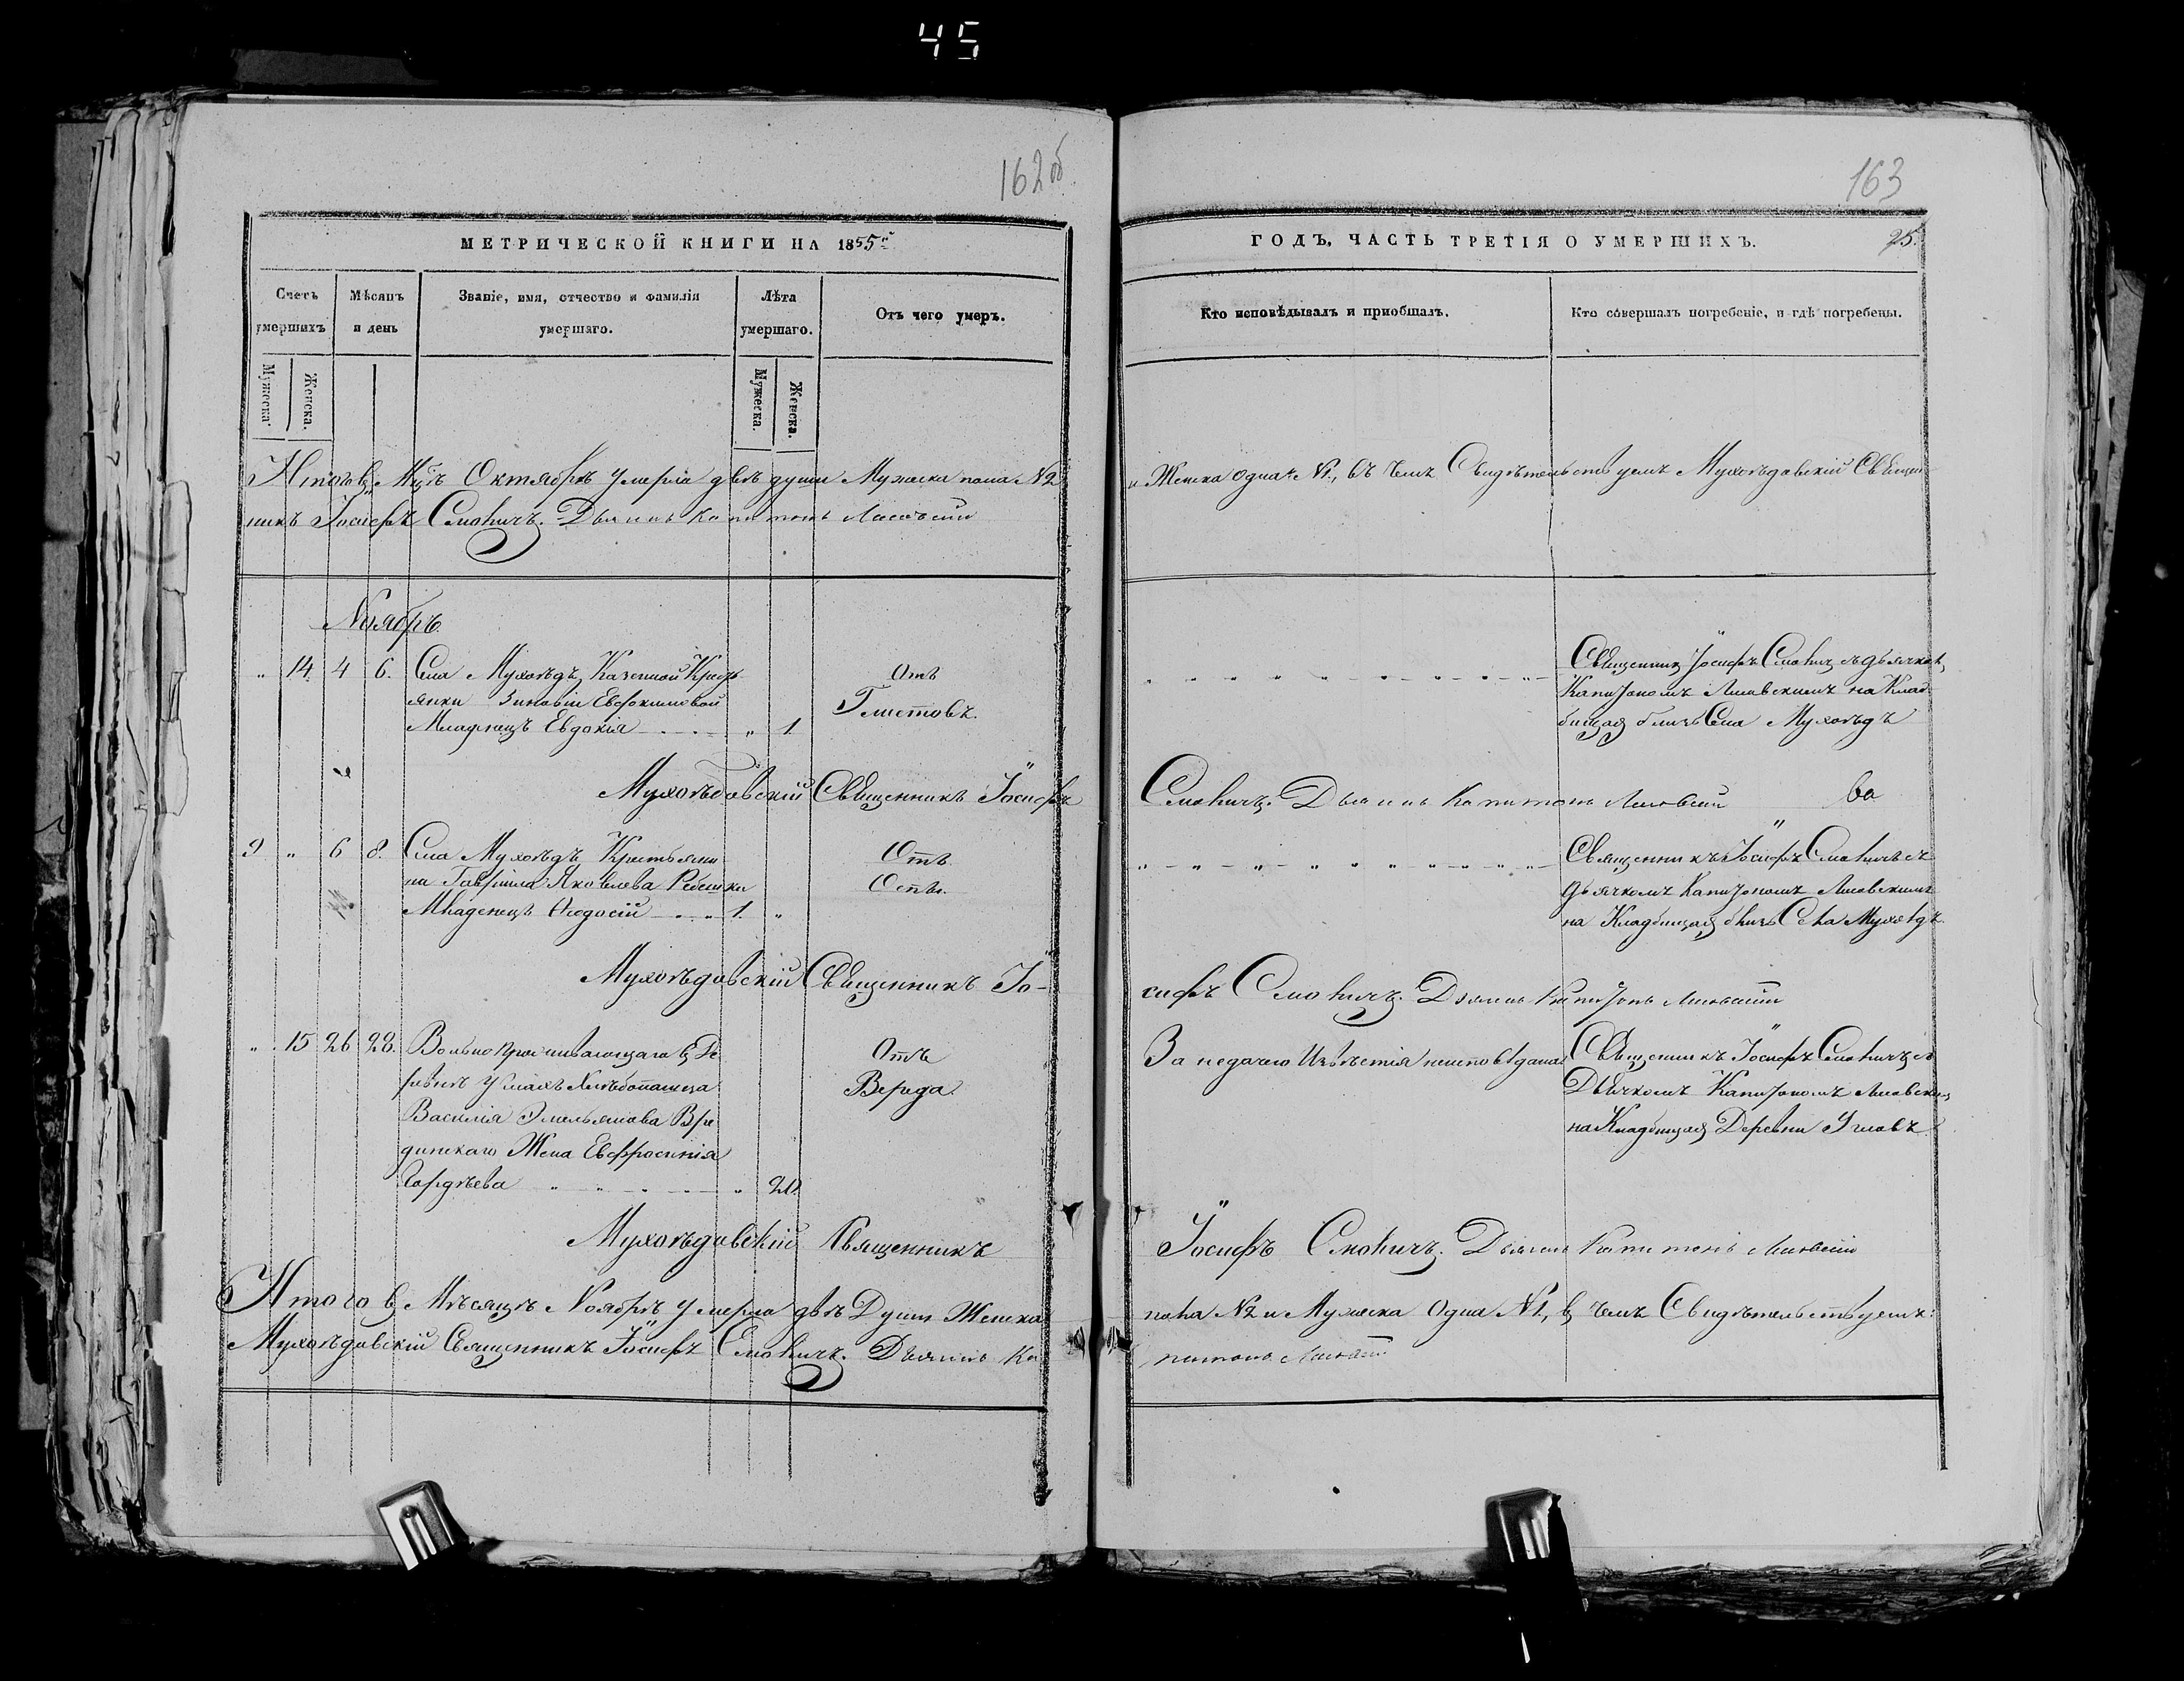 45
162об
МЕТРИЧЕСКОЙ КНИГИ НА 1855й
Счетъ умершихъ
Мѣсяцъ и день
Званіе, имя, отчество и фамилія умершаго.
Лѣта умершаго.
Отъ чего умеръ.
Мужеска.
Женска.
Мужеска.
Женска.
Итого въ Мцѣ Октябрѣ умерло двѣ души Мужеска пола №2
никъ Іосифъ Смоличъ. Дьячокъ Капитонъ Лисовскій
Ноябрь
„ 14 4 6. Села Мухоѣдъ Казенной Кресть
янки Зиновіи Евфокимовой
Младенецъ Евдокія „ 1
Отъ
Глистовъ.
Мухоѣдовскій Священникъ Іосифъ
9 „ 6 8. Села Мухоѣдъ Крестьяни
на Гавріила Яковлева Ребенка
Младенецъ Ѳеодосій 1. „
Отъ
Оспы.
Мухоѣдовскій Священникъ Іо-
„ 15 26 28. Вольнопроживающаго въ Де
ревнѣ Углахъ Хлѣбопашца
Василія Эмельянова Вре
динскаго Жена Евфросинія
Гордѣева „
Отъ
Вереда.
Мухоѣдовскій Священникъ
Итого въ Мѣсяцѣ Ноябрѣ умерло двѣ Души Женска
Мухоѣдовскій Священникъ Іосифъ Смоличъ. Дьячокъ Ка
163
ГОДЪ, ЧАСТЬ ТРЕТІЯ О УМЕРШИХЪ.
25.
Кто исповѣдывалъ и приобщалъ.
Кто совершалъ погребеніе, и гдѣ погребены.
и Женска одна №1, въ чемъ Свидѣтельствуемъ Мухоѣдовскій Священ
Священникъ Іосифъ Смоличъ съ дьячкомъ
Капитономъ Лисовскимъ на Клад
бищѣ близь Села Мухоѣдъ
Смоличъ. Дьячокъ Капитонъ Лисовскій
Священникъ Іосифъ Смоличъ съ
дьячкомъ Капитономъ Лисовскимъ
на Кладбищѣ близь Села Мухоѣдъ.
сифъ Смоличъ. Дьячокъ Капитонъ Лисовскій
За недачею Извѣстія неисповѣдана
Священникъ Іосифъ Смоличъ съ
Дьячкомъ Капитономъ Лисовскимъ
на Кладбищѣ Деревни Угловъ
Іосифъ Смоличъ. Дьячокъ Капитонъ Лисовскій
пола №2 и Мужеска Одна №1, въ чемъ Свидѣтельствуемъ:
питонъ Лисовскій